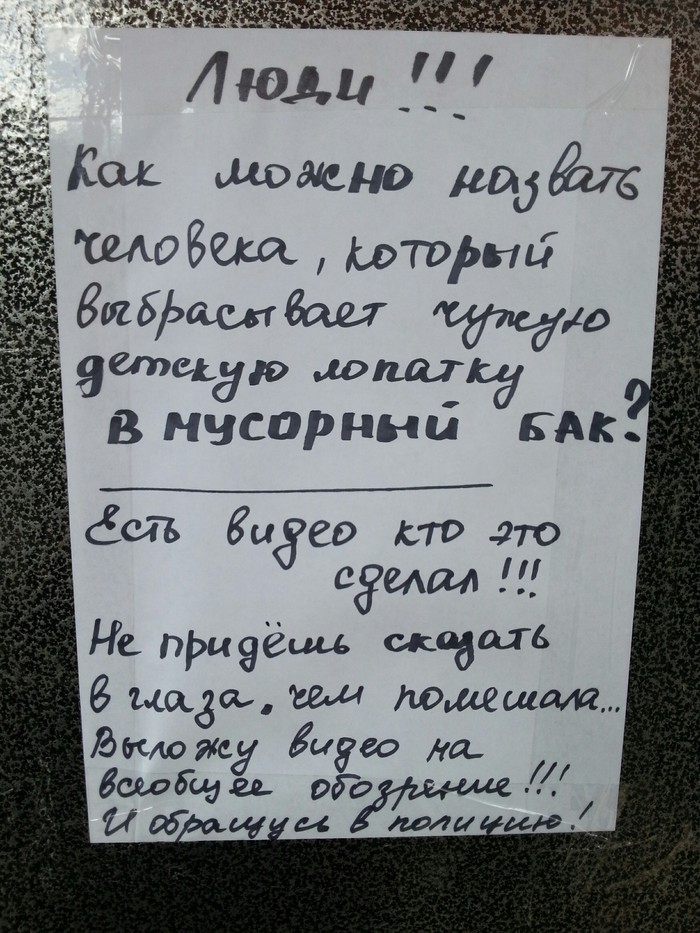 Люди!!!
Как можно назвать
человека, который
выбрасывает чужую
детскую лопатку
в мусорный бак?
Есть видео кто это
сделал!!!
Не придёшь сказать
в глаза, чем помешала...
Выложу видео на
всеобщее обозрение!!!
И обращусь в полицию!